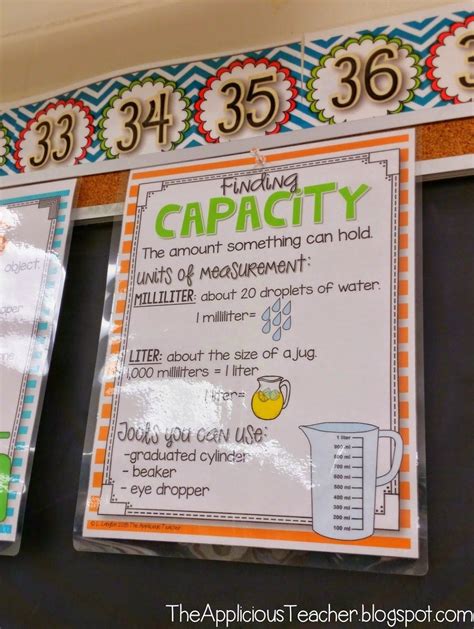 33 34 35 36
Finding
CAPACITY
The amount something can hold.
units of measurement:
MILLILITER: about 20 droplets of water.
1 milliliter=
LITER: about the size of a jug.
1,000 milliliters = 1 liter
1 liter=
Tools you can use:
-graduated cylinder
- beaker
- eye dropper
1 liter
900 ml
800 ml
700 ml
600 ml
500 ml
400 ml
300 ml
200 ml
100 ml
The Applicious Teacher
object.
TheAppliciousTeacher.blogspot.com